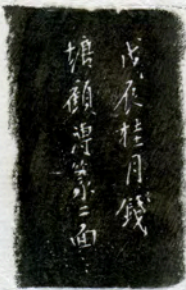 戊辰桂月錢
塘顧淂篆二面